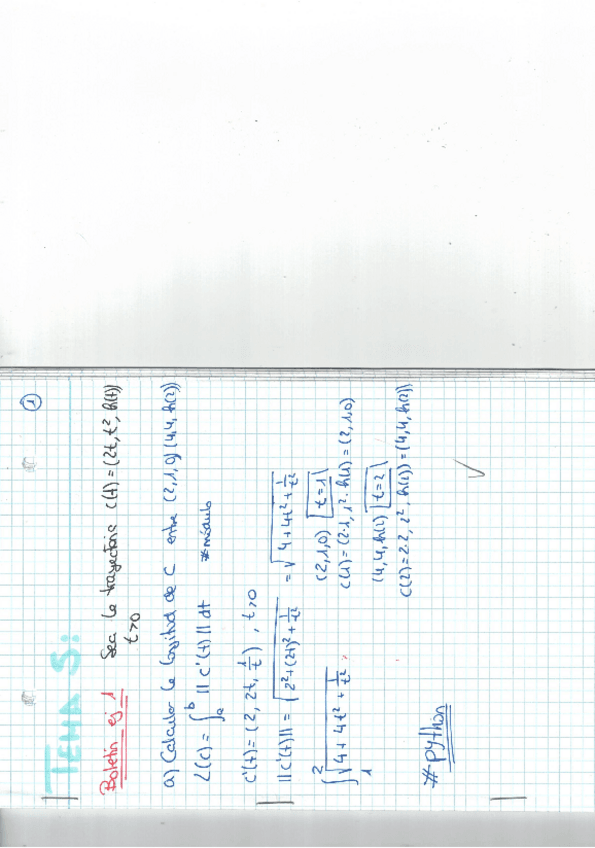 1
TEMA 5:
Boletín ej 1 Sea la trayectoria c(t) = (2t, t², ln(t))
t>0
a) Calcular la longitud de C entre (2,1,0) (4,4, ln(2))
L(c) = ∫ₐᵇ ||c'(t)|| dt #módulo
c'(t) = (2, 2t, 1/t), t>0
||c'(t)|| = √(2² + (2t)² + 1/t²) = √(4 + 4t² + 1/t²)
(2,1,0) t=1
∫₁² √(4 + 4t² + 1/t²)
c(1) = (2·1, 1², ln(1)) = (2,1,0)
(4,4, ln(2)) t=2
c(2) = (2·2, 2², ln(2)) = (4,4, ln(2))
#python